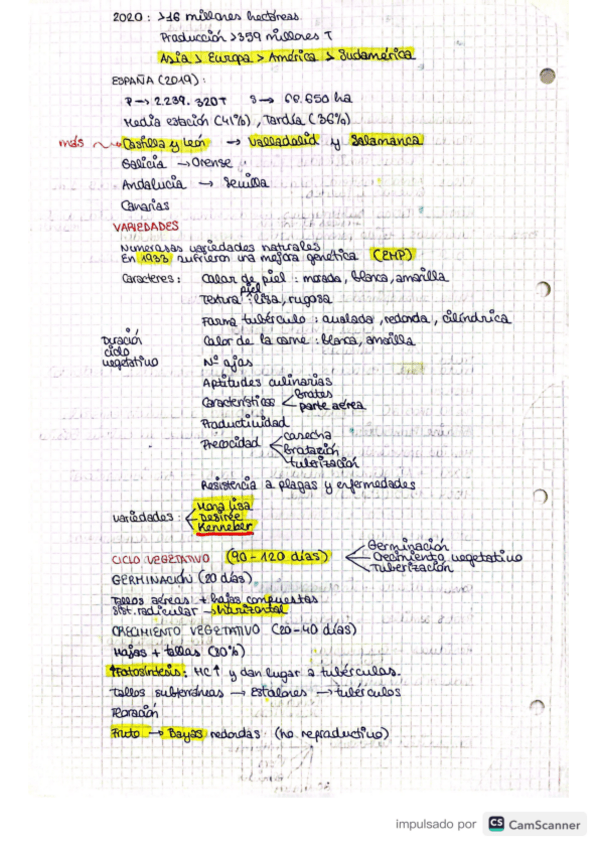 2020: >16 millones hectáreas
Producción >359 millones T
Asia > Europa > América > Sudamérica
ESPAÑA (2019):
P → 2.239.320T S → 66.650 ha
Media estación (41%), Tardía (36%)
más → Castilla y León → Valladolid y Salamanca
Galicia → Orense
Andalucía → Sevilla
Canarias
VARIEDADES
Numerosas variedades naturales
En 1933 sufrieron una mejora genética (EMP)
Caracteres: Color de piel: morada, blanca, amarilla
Textura piel: lisa, rugosa
Forma tubérculo: ovalada, redonda, cilíndrica
Duración ciclo vegetativo
Color de la carne: blanca, amarilla
Nº ojos
Aptitudes culinarias
Características < Brotes
parte aérea
Productividad
Precocidad < cosecha
Brotación
tuberización
Resistencia a plagas y enfermedades
variedades: < Mona lisa
Desirée
Kenneber
CICLO VEGETATIVO (90-120 días) < Germinación
Crecimiento vegetativo
Tuberización
GERMINACIÓN (20 días)
Tallos aéreos + hojas compuestas
Sist. radicular → horizontal
CRECIMIENTO VEGETATIVO (20-40 días)
Hojas + tallos (80%)
↑Fotosíntesis: HC↑ y dan lugar a tubérculos.
Tallos subterráneos → Estolones → tubérculos
Floración
Fruto → Bayas redondas (no reproductivo)
impulsado por CS CamScanner